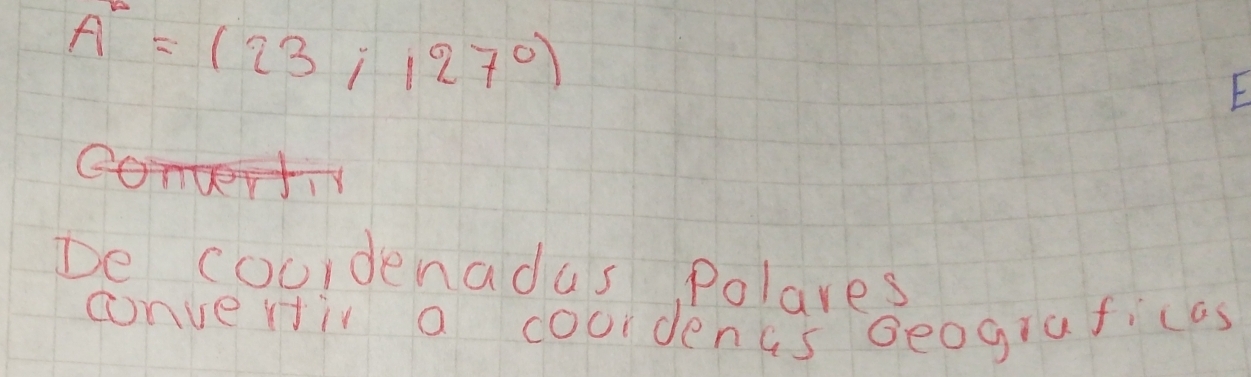 A = (23 ; 127°)
E
Convertir
De coordenadas Polares
convertir a coordenas Geograficas